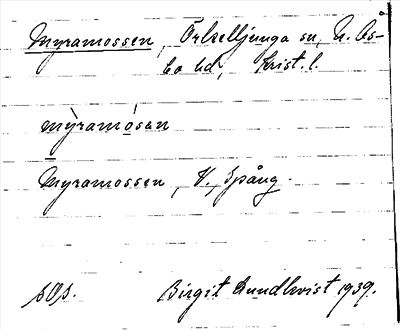 Myramossen, Örkelljunga sn, N. Ås-
bo hd, Krist. l.
mỳramósen
Myramossen, V. Spång.
Birgit Lundkvist 1939.